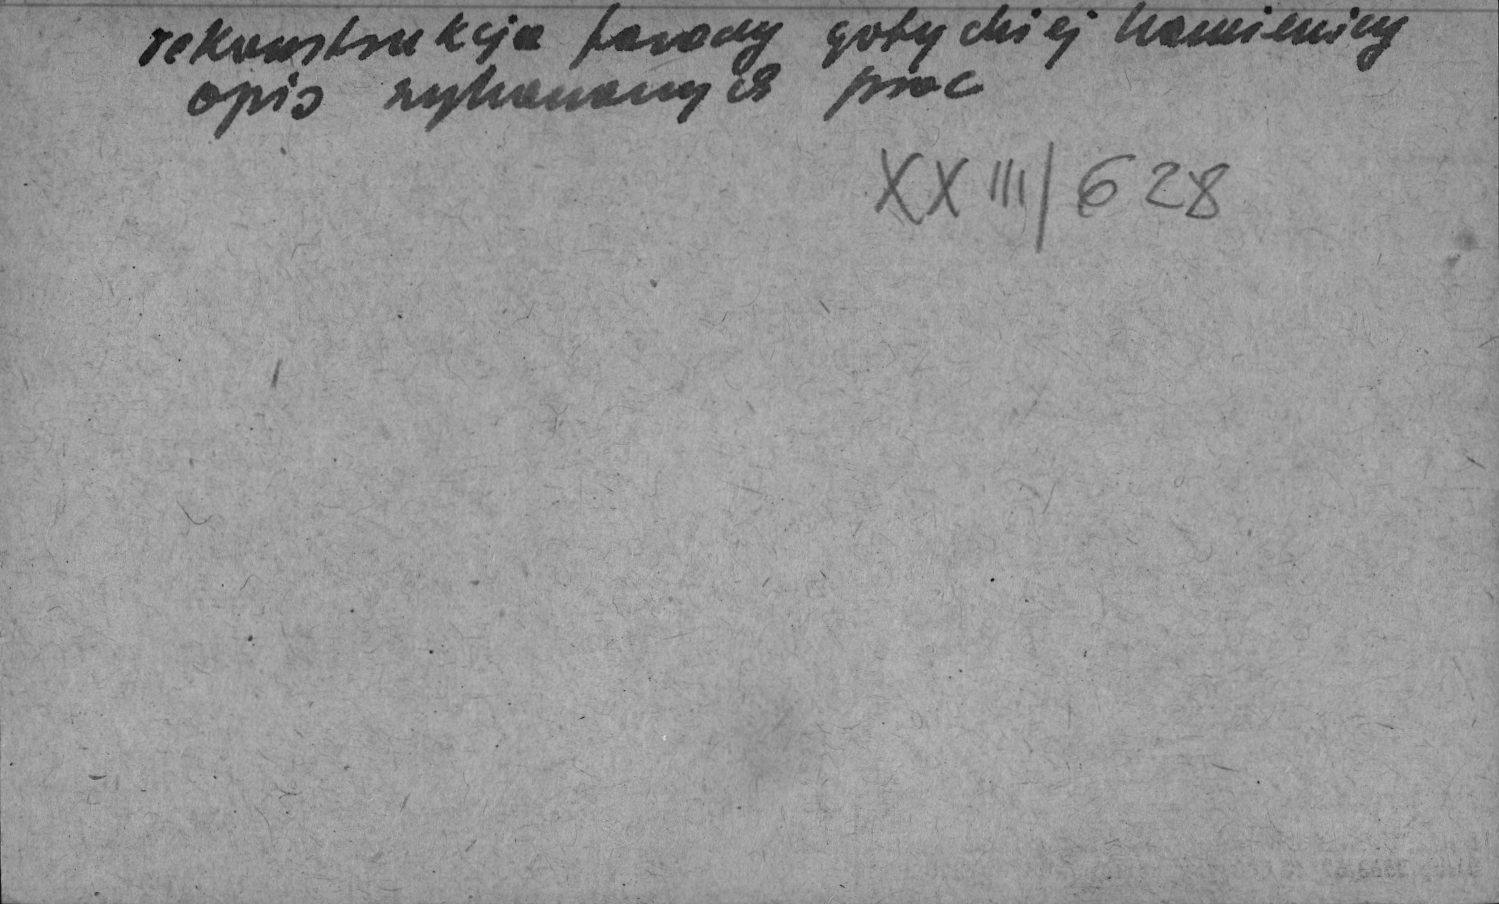 rekonstrukcja fasady gotyckiej kamienicy
opis wykonanych prac
XXIII/628